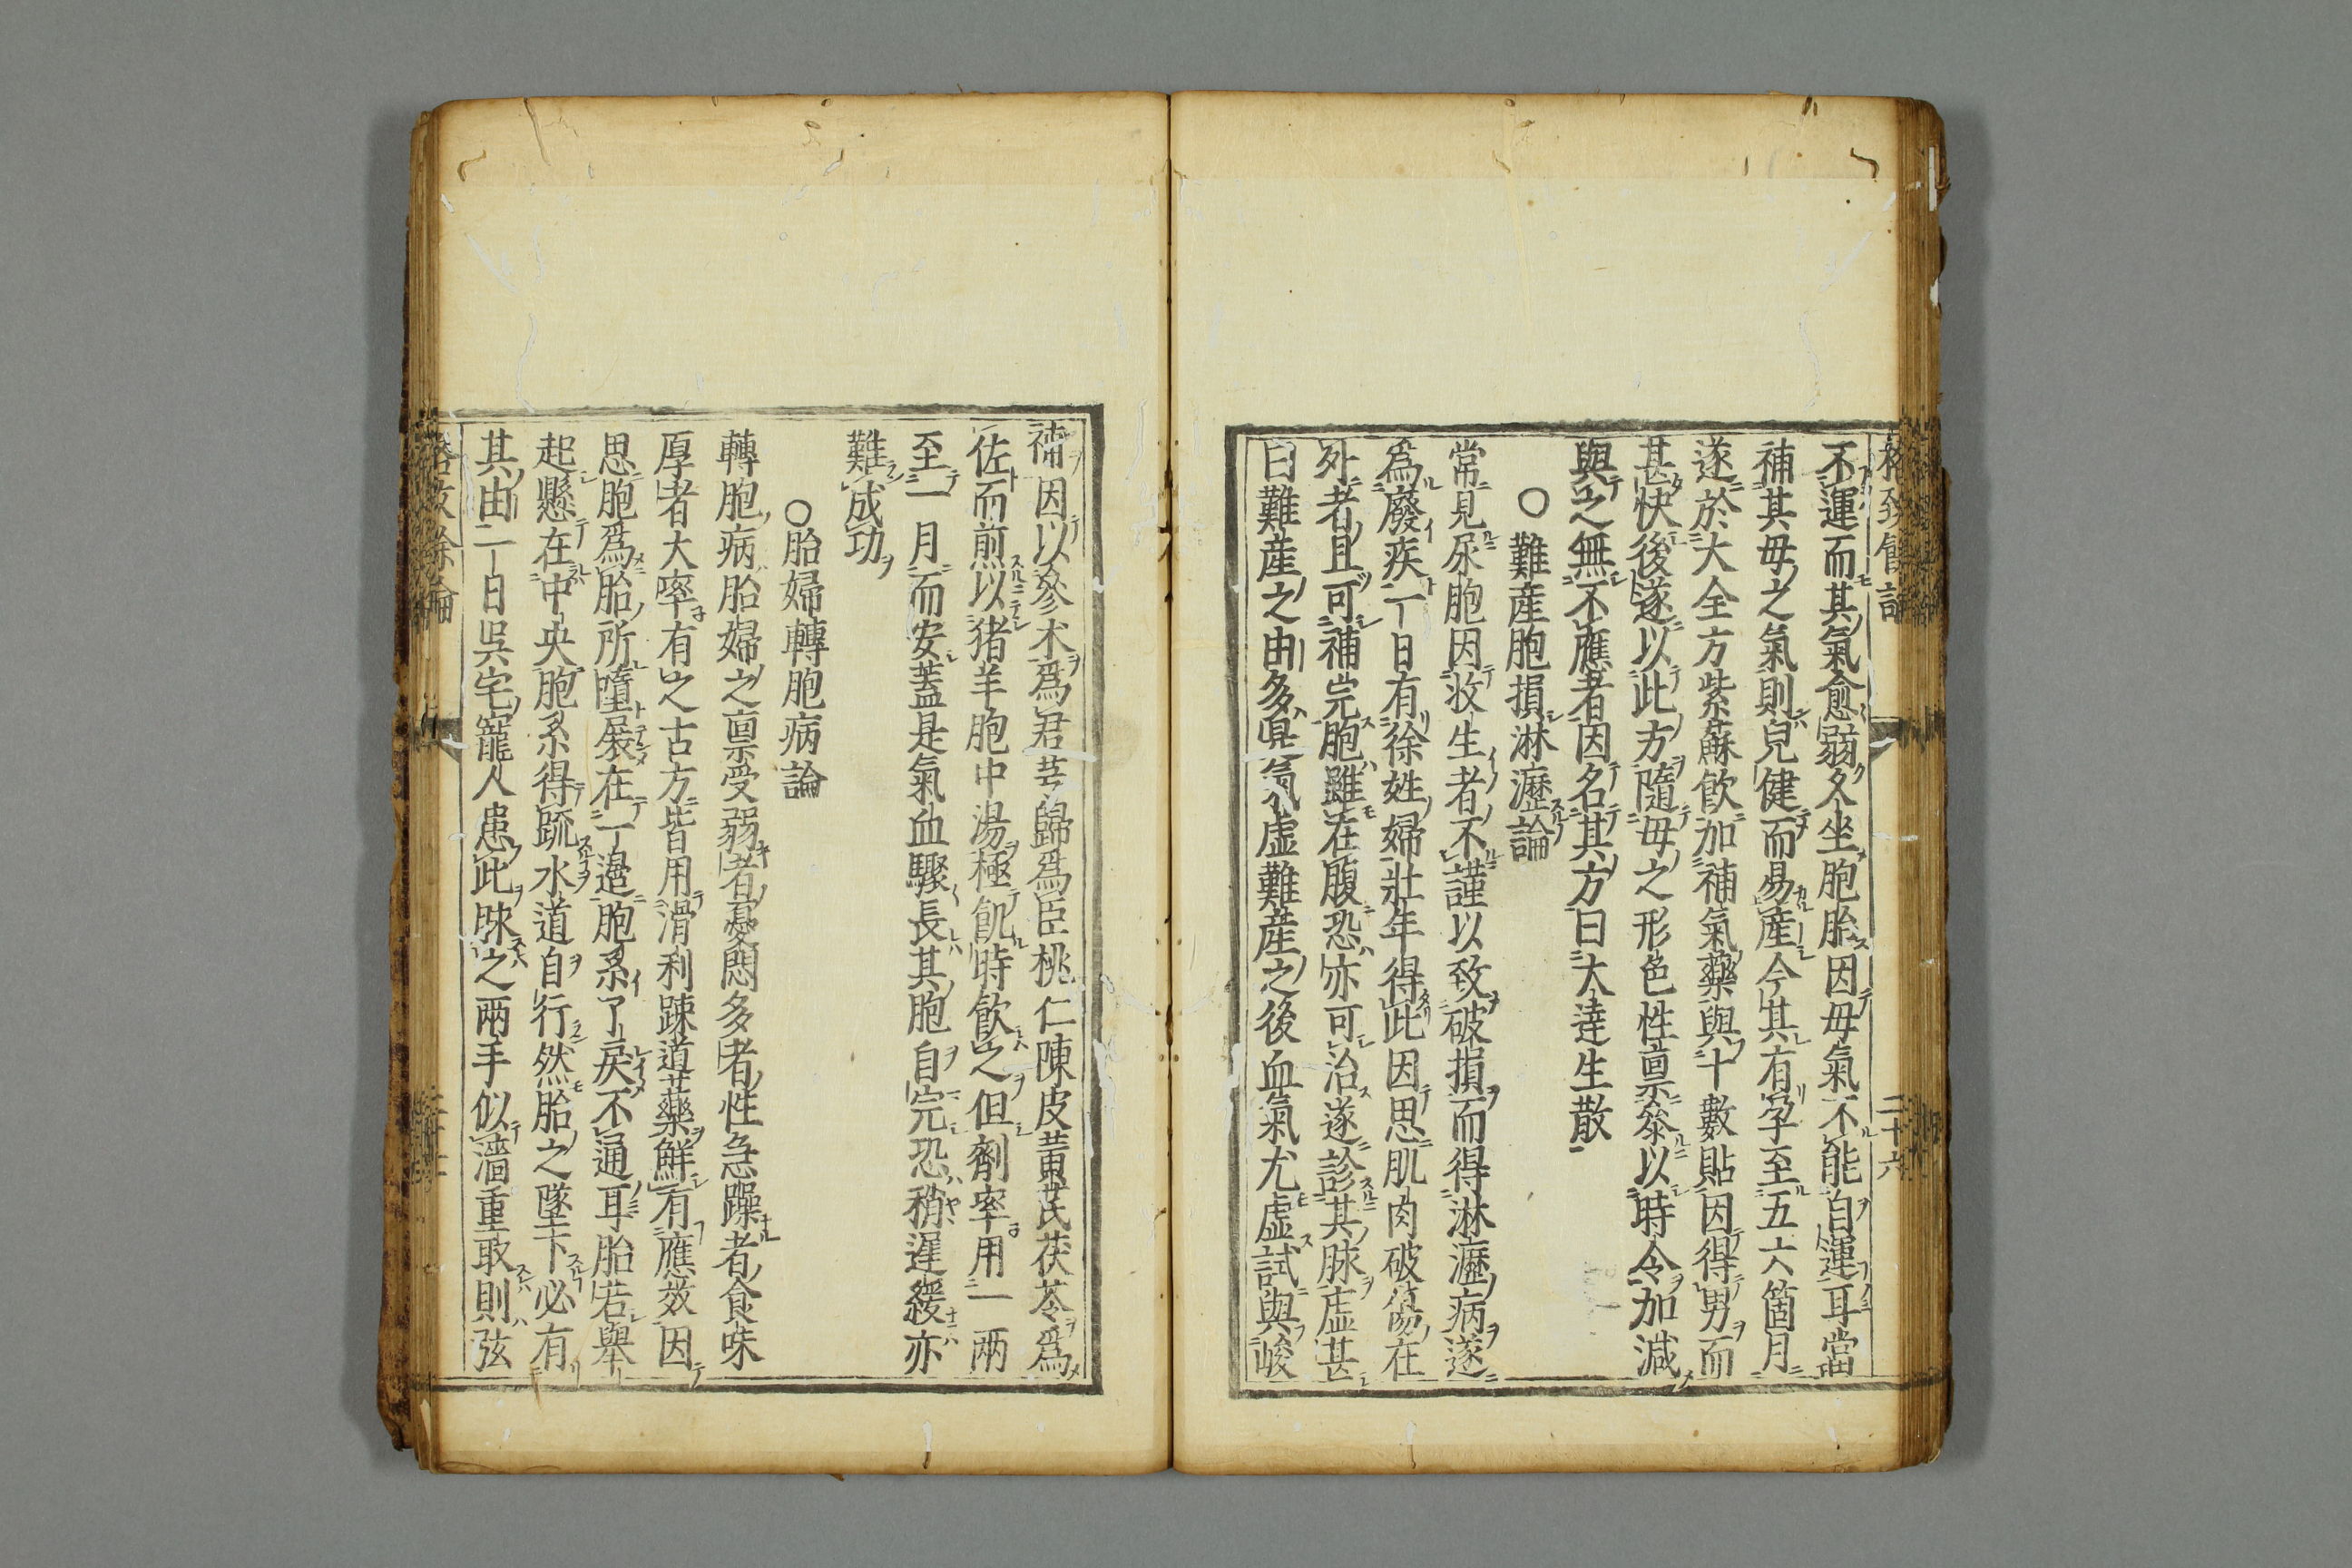 不運而其氣愈弱久坐胞胎因母氣不能自運耳當
補其母之氣則兒健而易產今其有孕至五六箇月
遂於大全方紫蘇飲加補氣藥與十數貼因得男而
甚快後遂以此方隨母之形色性稟參以時令加減
與之無不應者因名其方曰大達生散
○難產胞損淋瀝論
常見尿胞因收生者不謹以致破損而得淋瀝病遂
爲廢疾一日有徐姓婦壯年得此因思肌肉破傷在
外者且可補完胞雖在腹恐亦可治遂診其脉虛甚
曰難產之由多是氣虛難產之後血氣尤虛試與峻
補因以參术爲君芎歸爲臣桃仁陳皮黃芪茯苓爲
佐而煎以猪羊胞中湯極飢時飲之但劑率用一兩
至一月而安蓋是氣血驟長其胞自完恐稍遲緩亦
難成功
○胎婦轉胞病論
轉胞病胎婦之稟受弱者憂悶多者性急躁者食味
厚者大率有之古方皆用滑利疎道藥鮮有應效因
思胞爲胎所墮展在一邉胞系了戾不通耳胎若舉
起懸在中央胞系得疏水道自行然胎之墜下必有
其由一日吳宅寵人患此脉之兩手似濇重取則弦
二十六